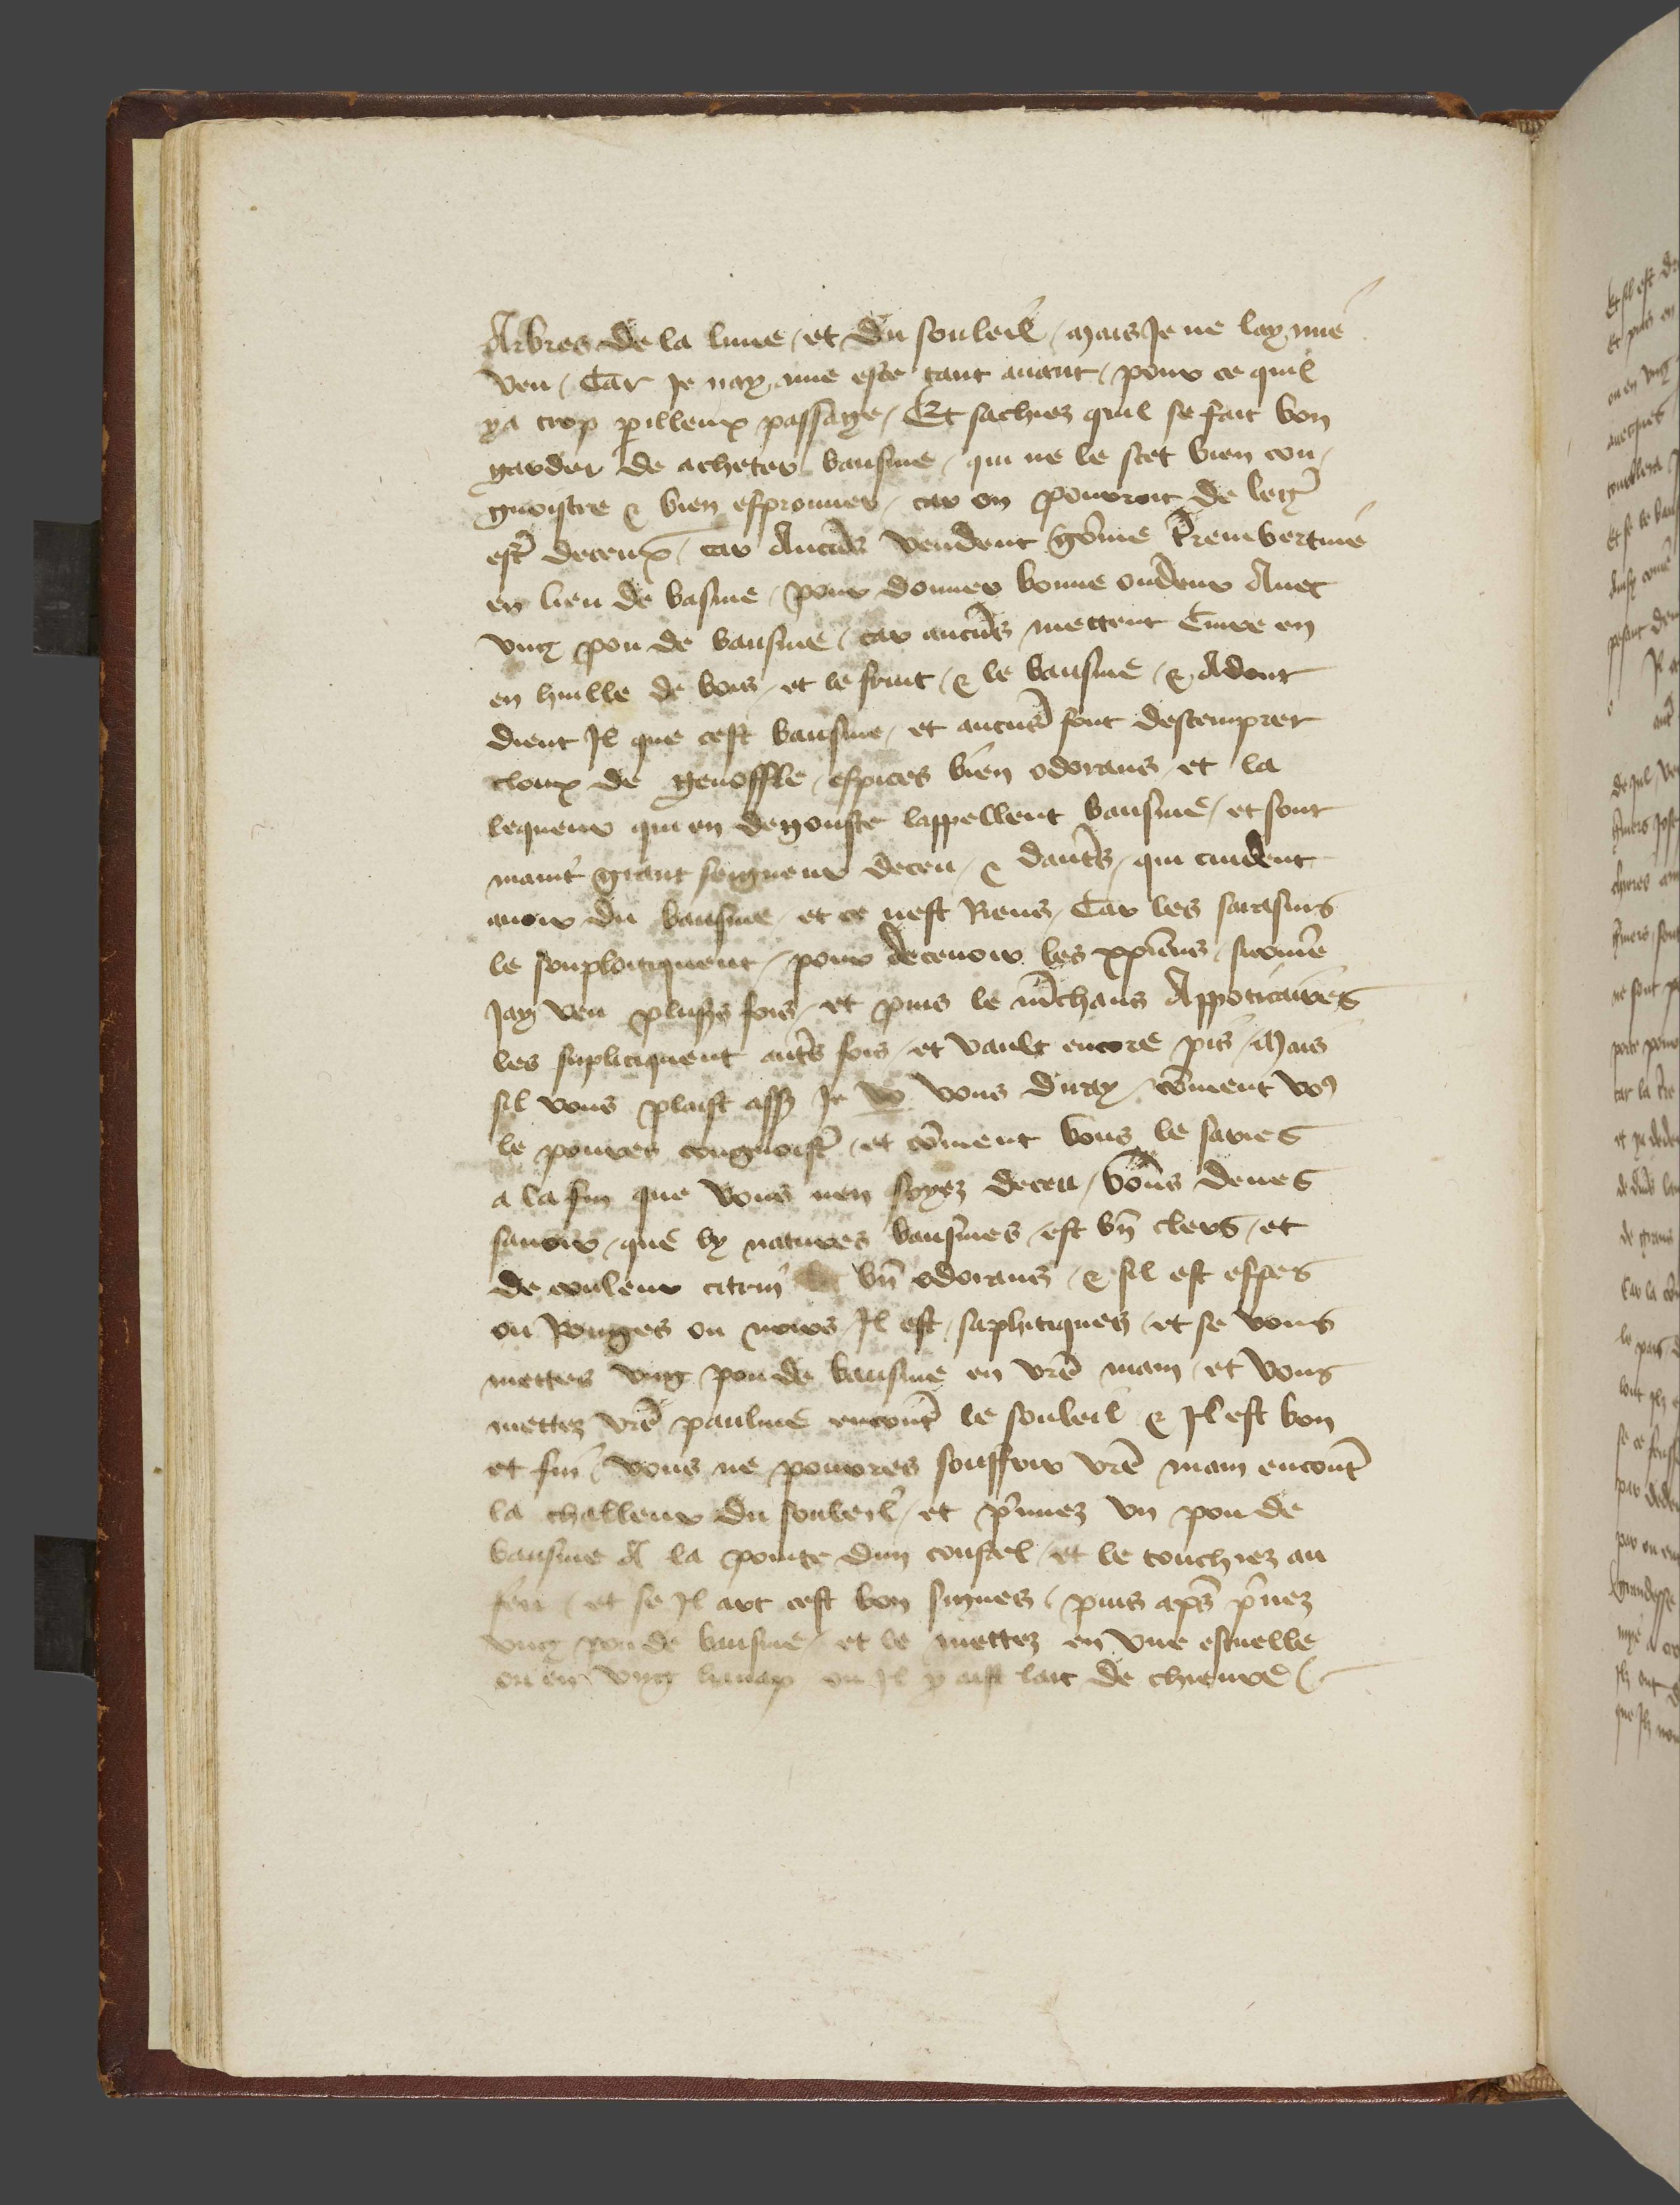 Arbres de la lune / et du souleil / mais Je ne lay mie
veu / Car Je nay mie este tant auant / pour ce quil
ya trop pilleux passage / Et sachiez quil se fait bon
garder de acheter bausme / qui ne le scet bien con-
gnoistre & bien esprouuer / car on pouuroit de legr̄
estr̄ deceux / car Aucūs vendent gōme
en lieu de basme / pour donner bonne oudeur Auec
vng pou de bausme / car aucūs mettent Cuire en
en huille de bois / et le fruit / & le bausme / & Adont
dient Il que cest bausme / et aucuns font destemprer
cloux de genoffle / espices bien odorans / et la
lequeur qui en degouste lappellent bausme / et sont
maint grant seigneur deceu / & daut̄s / qui cuident
auoir du bausme / et ce nest Riens / Car les sarasins
le souploitiquent / pour deceuoir les xp̄iens / sicōme
Jay veu plus̄s fois / et puis le m̄chans Appoticaires
les suplitiquent aut̄s fois / et vault encore pis / Mais
sil vous plaist ass Je vo vous diray / cōment vo9
le poures congnoistr̄ / et cōment vous le saries
a la fin que vous nen soyez deceu / vous deues
sauoir / que vy natures bausmes / est bn̄ clers / et
de couleur citrin bn̄ odorans / & sil est espes
ou Rouges ou noirs / Il est / saphitiques / et se vous
mettes vng pou de bausme en vr̄e main / et vous
mettez vr̄e paulme encont̄ le souleil & Il est bon
et fin / vous ne pouures souffrir vr̄e main encont̄
la challeur du souleil / et p̄nnez vn pou de
bausme A la pointe dun coustel / et le touchiez au
feu / et se Il art cest bon signes / puis aps̄ p̄nez
vng pou de bausme / et le mettez en vne escuelle
ou en vng hanap ou Il y aist lait de chieure /